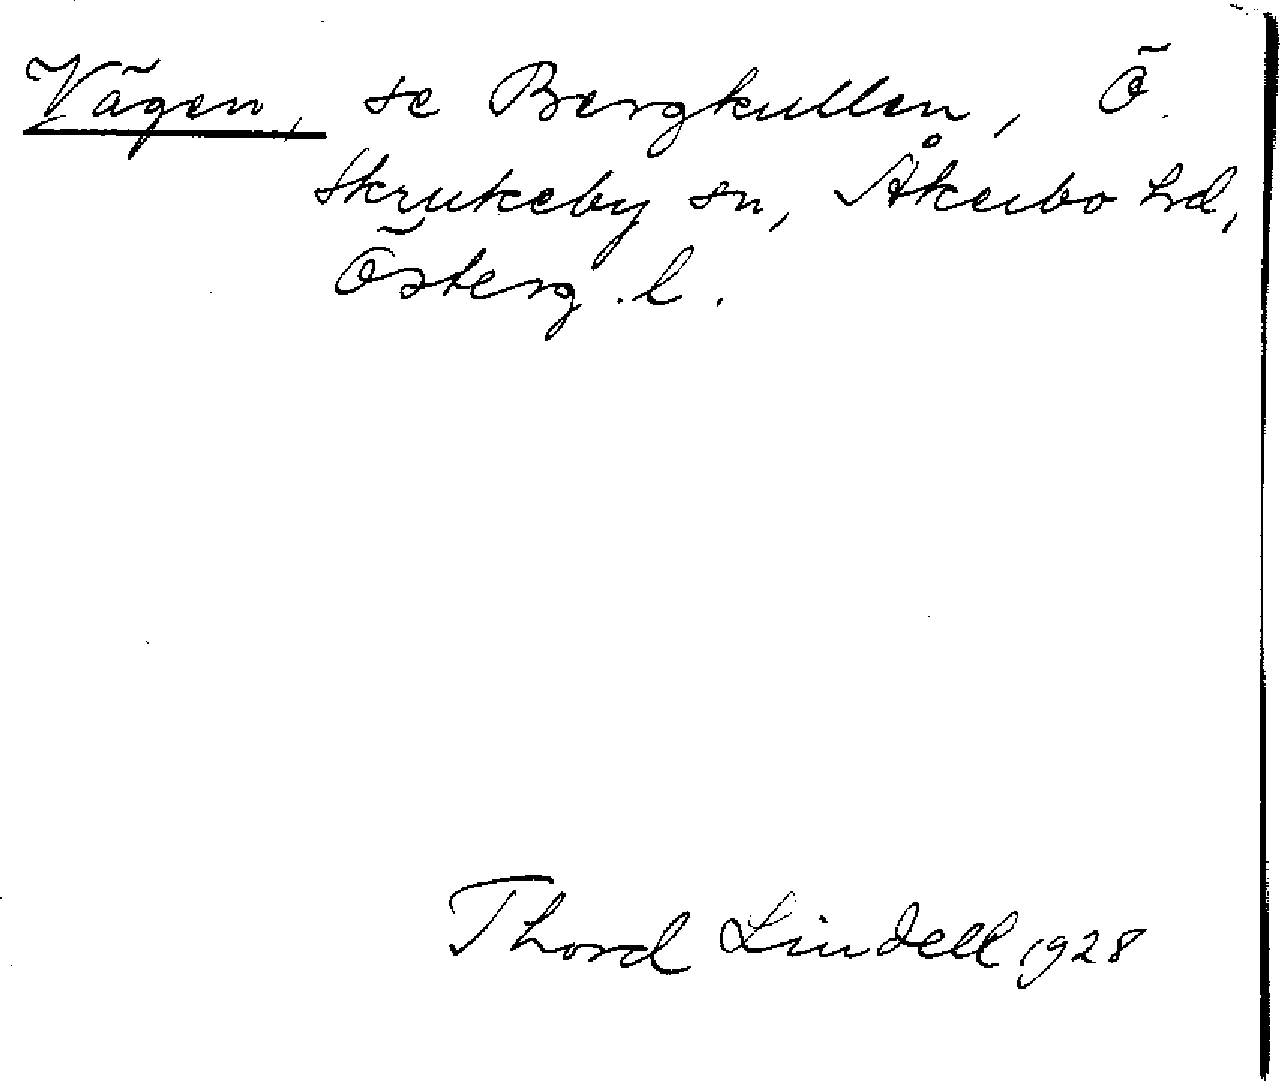 Vägen, se Bergkullen, Ö.
Skrukeby sn, Åkerbo hd,
Österg. l.
Thord Lindell 1928